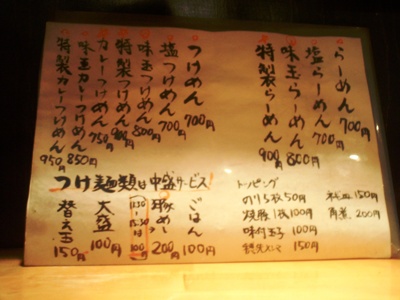 らーめん 700円
塩らーめん 700円
味玉らーめん 800円
特製らーめん 900円
つけめん 700円
塩つけめん 700円
味玉つけめん 800円
特製つけめん 900円
カレーつけめん 750円
味玉カレーつけめん 850円
特製カレーつけめん 950円
つけ麺類は中盛サービス!
ごはん 100円
豚めし 200円
大盛 100円
替玉 150円
トッピング
のり5枚 50円
焼豚1枚 100円
味付玉子 100円
150円
150円
角煮 200円